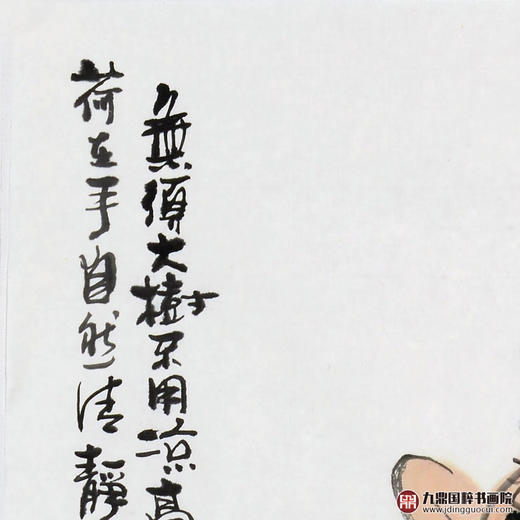 無須大樹不用涼高
荷在手自然清靜
九鼎国粹书画院
www.jdingguocui.com